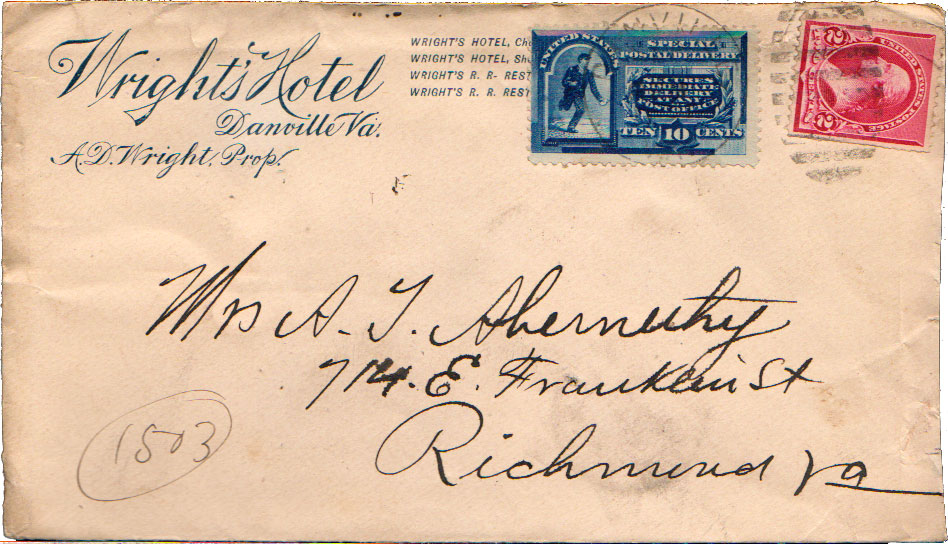 Wright's Hotel
Danville Va.
A. D. Wright, Prop.
WRIGHT'S HOTEL,
WRIGHT'S HOTEL,
WRIGHT'S R. R- REST
WRIGHT'S R. R. REST
UNITED STATES
SPECIAL
POSTAL DELIVERY
SECURES
IMMEDIATE
DELIVERY
AT ANY
POST OFFICE
TEN 10 CENTS
UNITED STATES POSTAGE
2 2
Mrs A. T. Abernethy
714. E. Franklin St
Richmond Va
1503